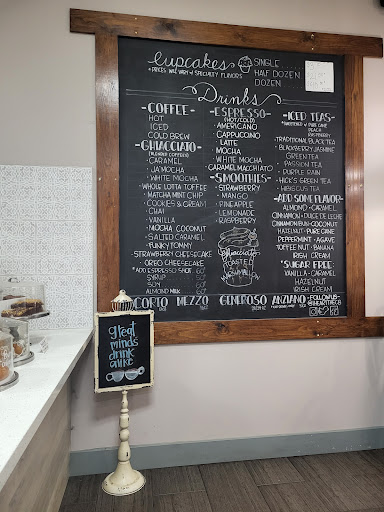 Cupcakes
* PRICES WILL VARY W/ SPECIALTY FLAVORS
SINGLE.....
HALF DOZEN
DOZEN
Drinks
-COFFEE-
HOT
ICED
COLD BREW
-GHIACCIATO-
BLENDED COFFEE
CARAMEL
JAMOCHA
WHITE MOCHA
WHOLE LOTTA TOFFEE
MATCHA MINT CHIP
COOKIES & CREAM
CHAI
VANILLA
MOCHA COCONUT
SALTED CARAMEL
FUNKY TOMMY
STRAWBERRY CHEESECAKE
OREO CHEESECAKE
* ADD ESPRESSO SHOT .60
SYRUP .60
SOY .60
ALMOND MILK .60
-ESPRESSO-
(HOT/COLD)
AMERICANO
CAPPUCCINO
LATTE
MOCHA
WHITE MOCHA
CARAMEL MACCHIATO
-SMOOTHIES-
STRAWBERRY
MANGO
PINEAPPLE
LEMONADE
RASPBERRY
Ghiacciato
-ICED TEAS-
*SWEETENED W/ PURE CANE
PEACH
RASPBERRY
TRADITIONAL BLACK TEA
BLACKBERRY JASMINE
GREEN TEA
PASSION TEA
PURPLE RAIN
HICK'S GREEN TEA
HIBISCUS TEA
-ADD SOME FLAVOR-
ALMOND - CARAMEL
CINNAMON - DULCE DE LECHE
CINNAMON BUN - COCONUT
HAZELNUT - PURE CANE
PEPPERMINT - AGAVE
TOFFEE NUT - BANANA
IRISH CREAM
*SUGAR FREE*
VANILLA - CARAMEL
HAZELNUT
IRISH CREAM
-FOLLOW US-
CORTO MEZZO GENEROSO ANZIANO
great
minds
drink
alike